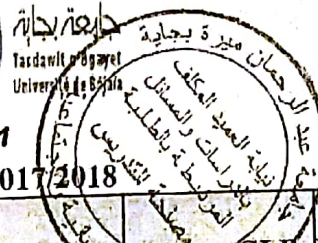 جامعة بجاية
Tasdawit n Bgayet
Université de Béjaïa
2017/2018
عبد الرحمان ميرة بجاية
نيابة العميد المكلف
بالدراسات والمسائل
المرتبطة بالطلبة